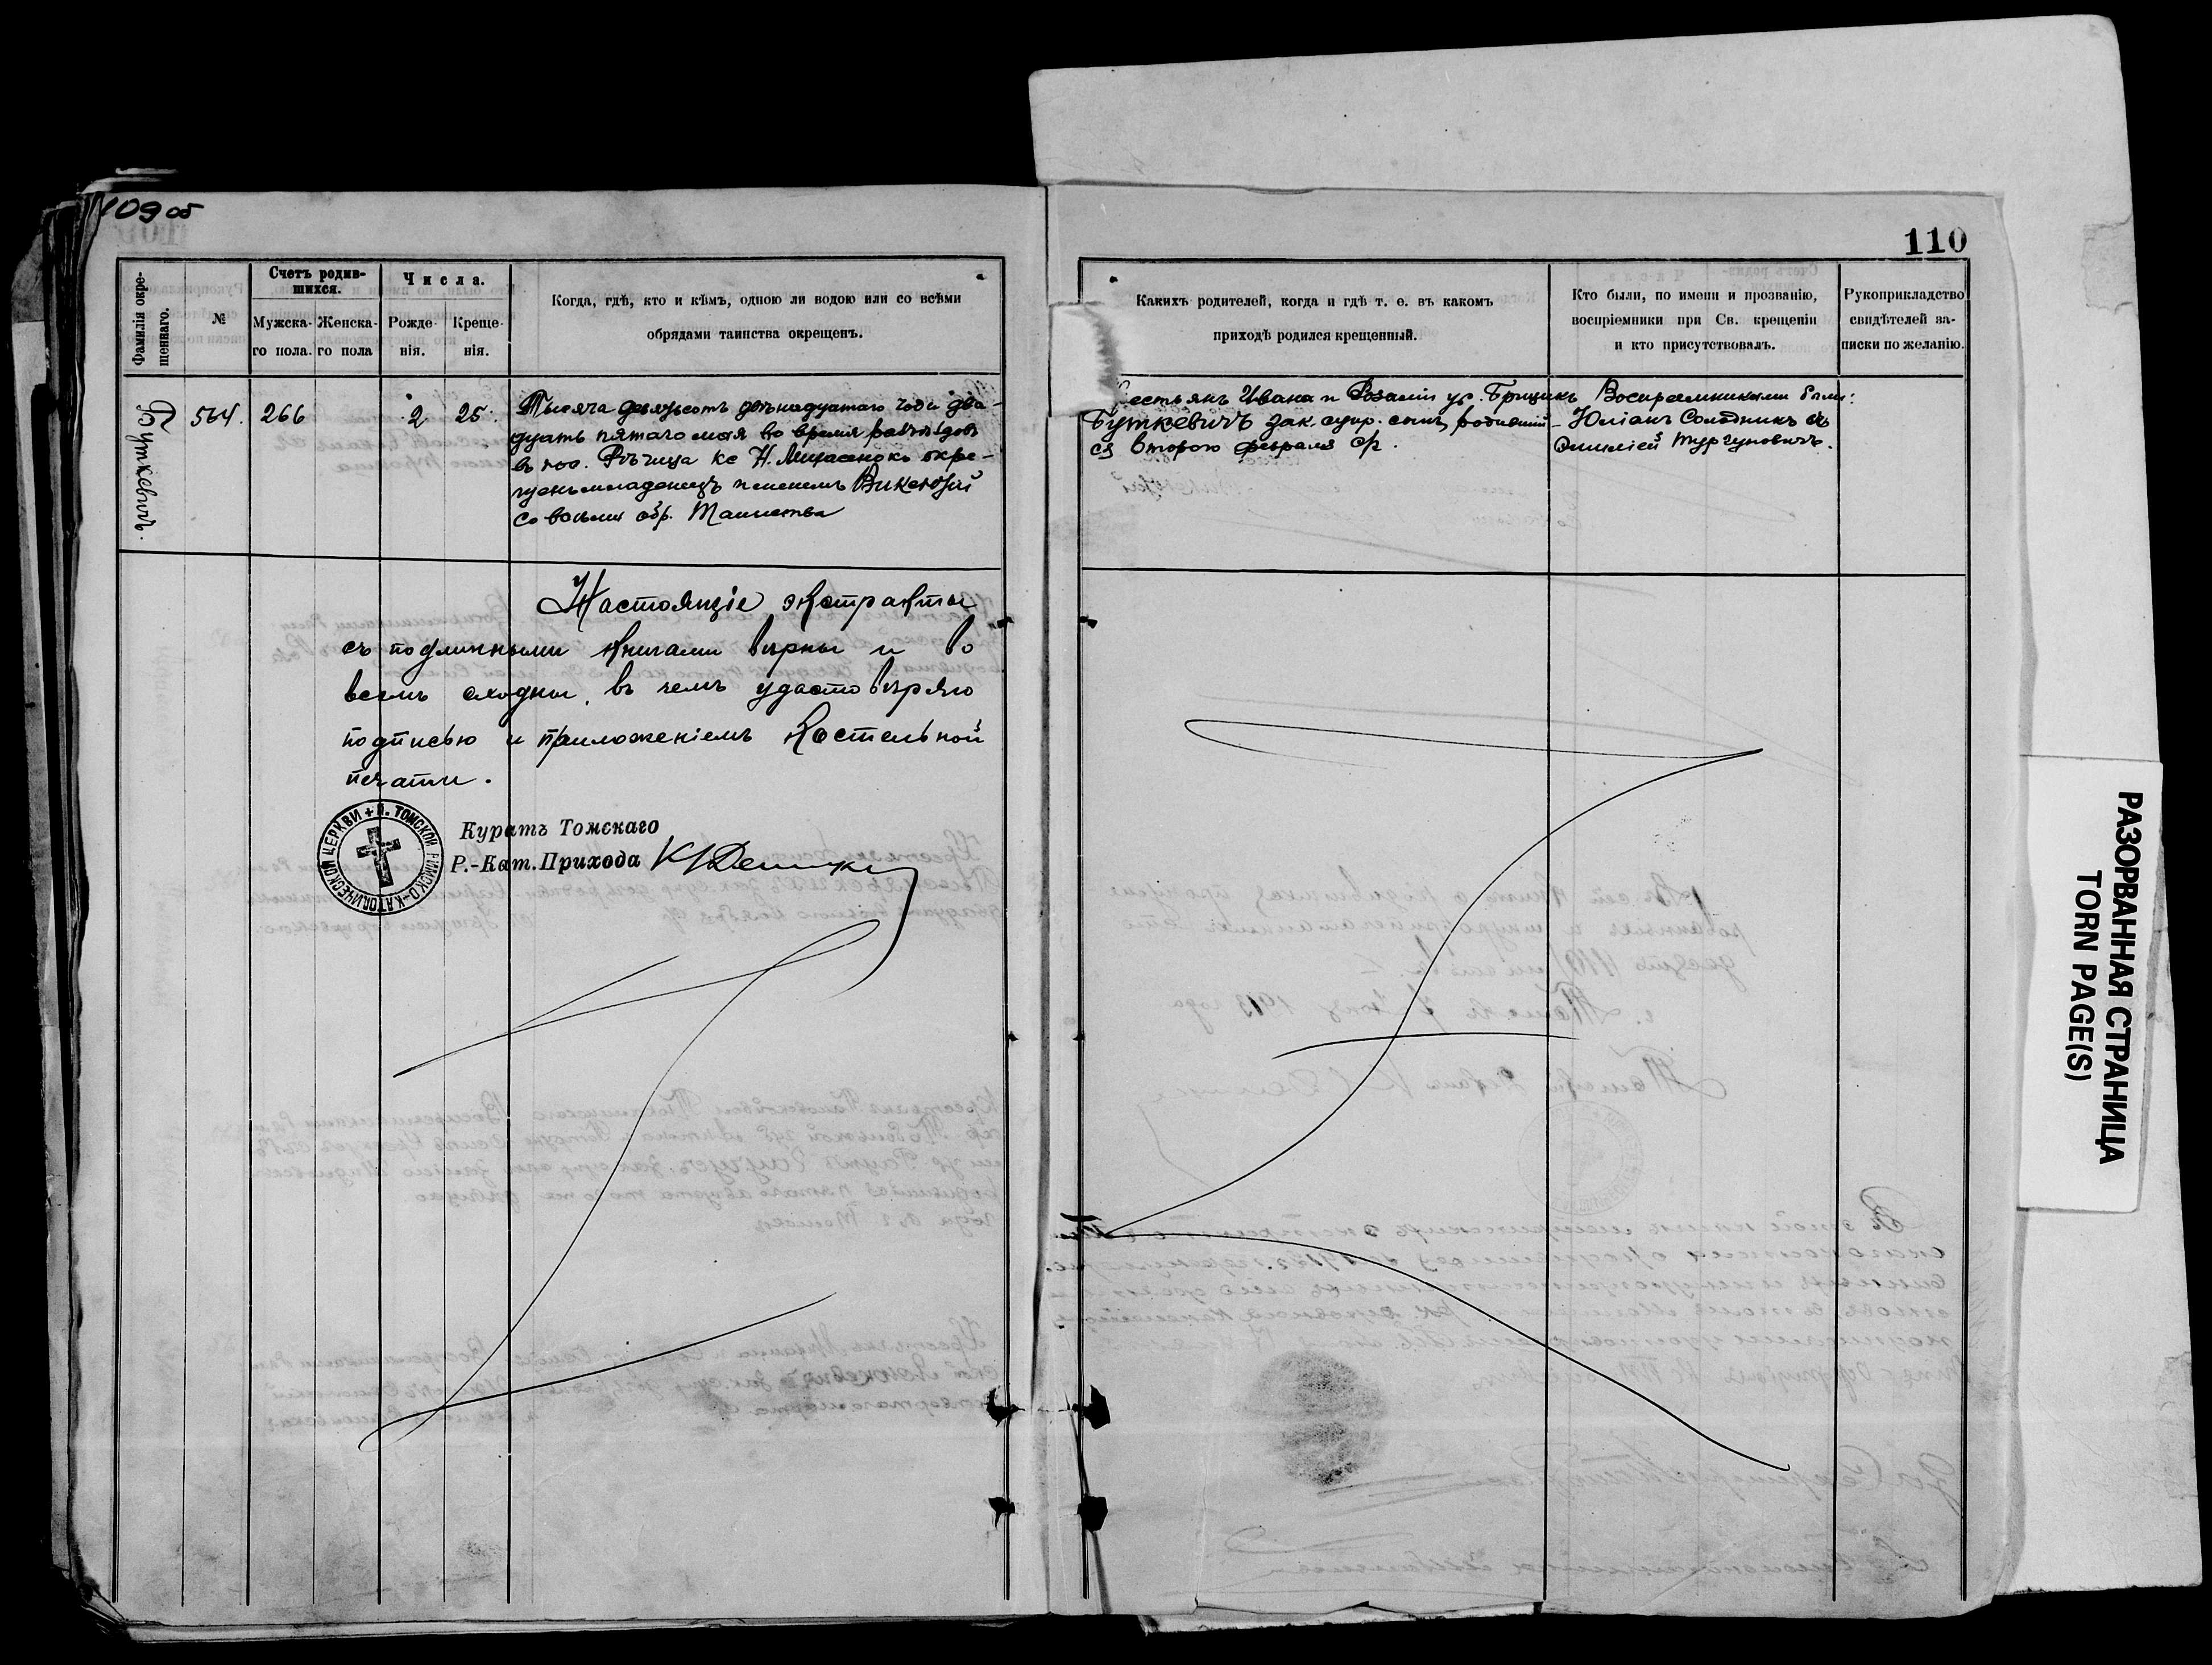 109 об
110
Фамилія окре-
щеннаго.
№
Счетъ родив-
шихся.
Мужска-
го пола.
Женска-
го пола
Числа.
Рожде-
нія.
Креще-
нія.
Когда, гдѣ, кто и кѣмъ, одною ли водою или со всѣми
обрядами таинства окрещенъ.
Каких родителей, когда и гдѣ т. е. въ какомъ
приходѣ родился крещенный.
Кто были, по имени и прозванію,
воспріемники при Св. крещеніи
и кто присутствовалъ.
Рукоприкладство
свидѣтелей за-
писки по желанію.
Буткевичъ.
564.
266
2
25.
Тысяча девятьсотъ двѣнадцатаго года два-
дцать пятаго мая во время разъѣздовъ
въ пос. Рѣчица кс Н. окре-
щенъ младенецъ именемъ Викентій
со всѣми обр. Таинства
естьянъ Ивана и Розаліи ур.
Буткевичъ зак. супр. сынъ, родившій-
ся второго февраля ср.
Воспріемниками были:
Юліанъ съ
Эмиліей
Настоящіе экстракты
съ подлинными книгами вѣрны и во
всемъ сходны, въ чемъ удостовѣряю
подписью и приложеніемъ Костельной
печати.
П. ТОМСКОЙ РИМСКО-КАТОЛИЧЕСКОЙ ЦЕРКВИ +
Куратъ Томскаго
Р.-Кат. Прихода
РАЗОРВАННАЯ СТРАНИЦА
TORN PAGE(S)